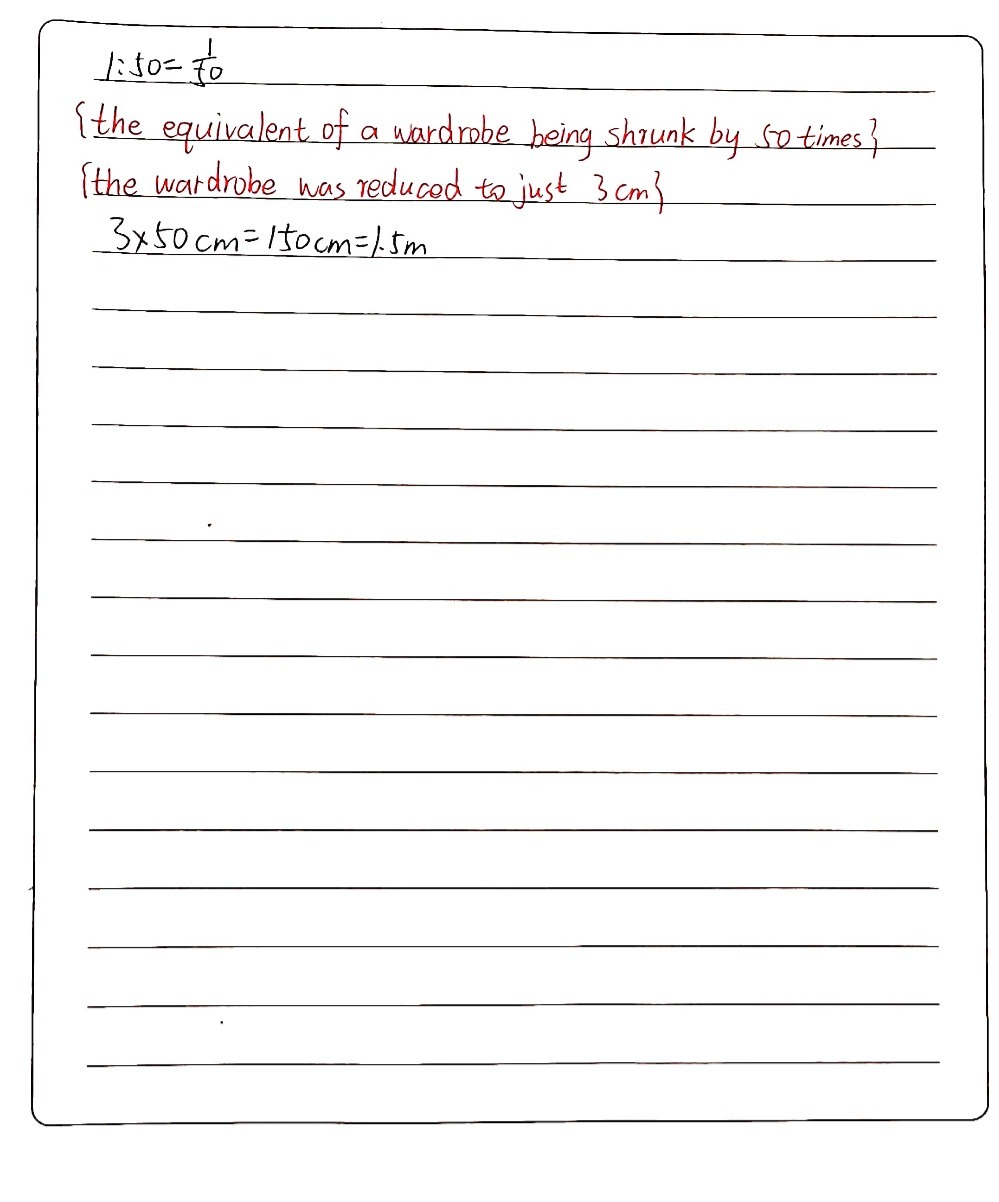 1:50=1/50
{the equivalent of a wardrobe being shrunk by 50 times}
{the wardrobe was reduced to just 3cm}
3×50cm=150cm=1.5m